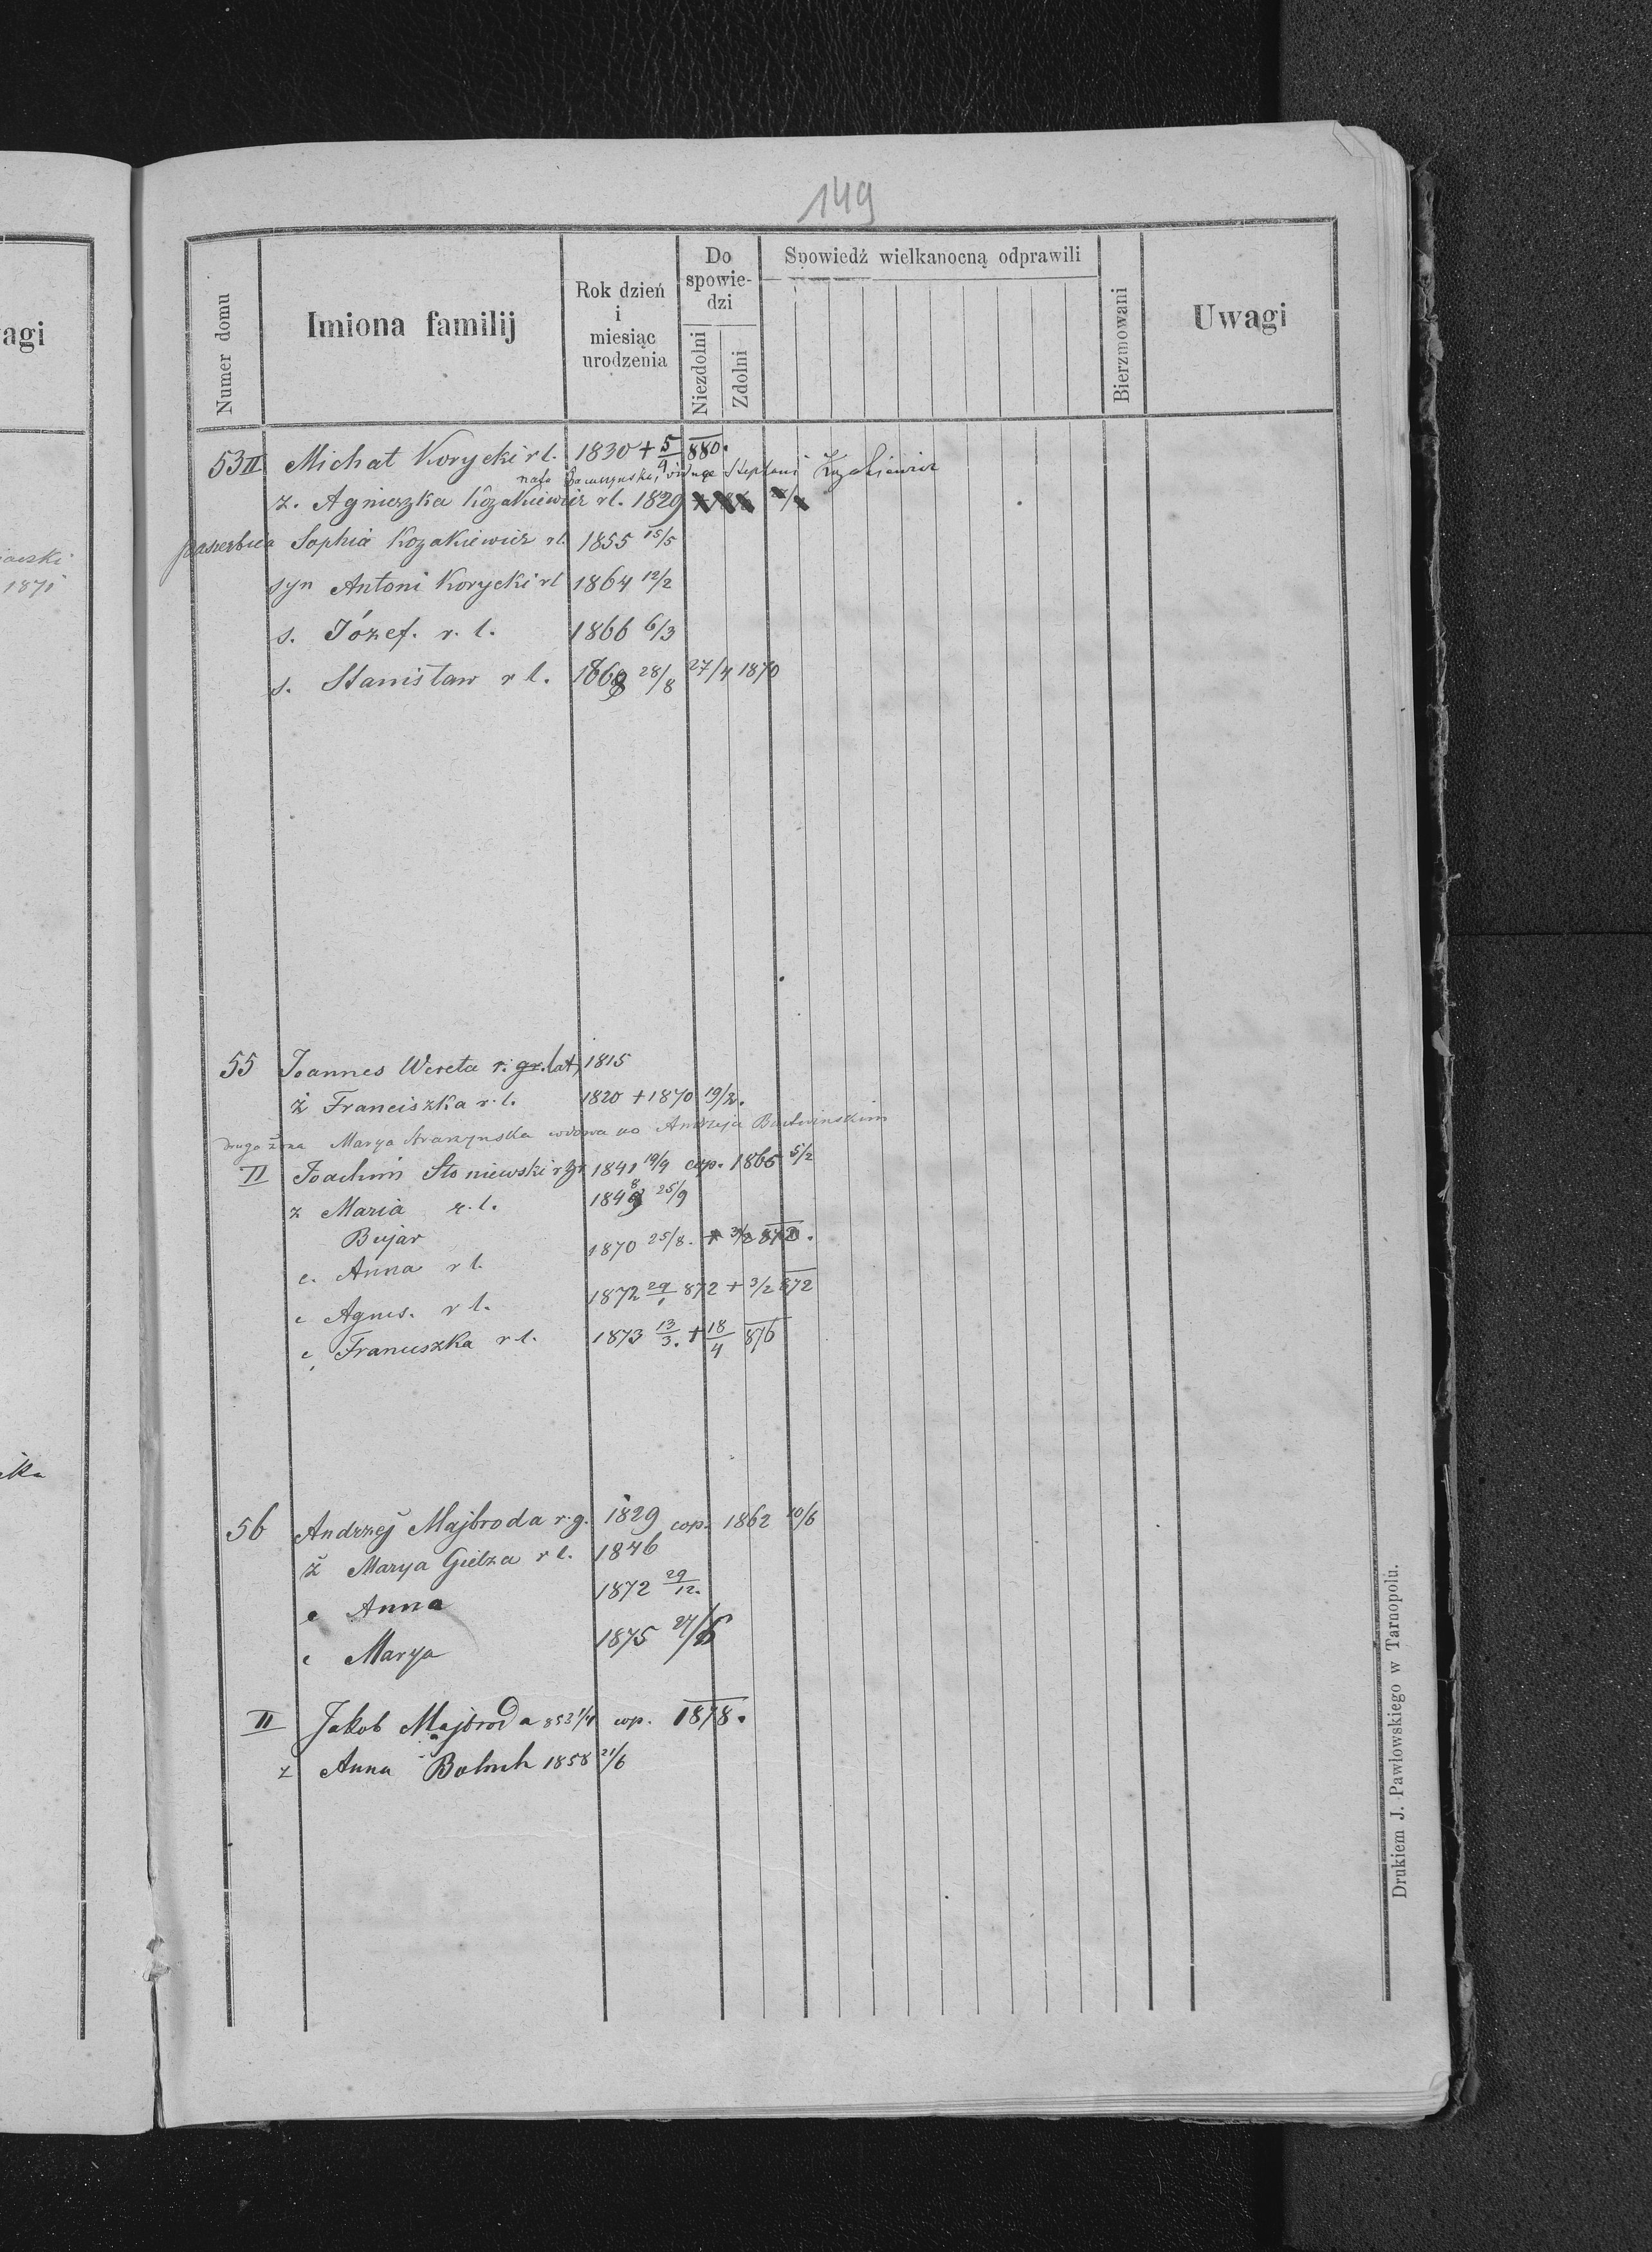 149
Numer domu
Imiona familij
Rok dzień i miesiąc urodzenia
Do spowiedzi
Niezdolni
Zdolni
Spowiedź wielkanocną odprawili
Bierzmowani
Uwagi
agi
53 II Michał Korycki r l. 1830 + 5/4 880.
nata vidua Stephani
ż. Agnieszka Kozakiewicz rl. 1829
pasierbica Sophia Kozakiewicz rl. 1855 15/5
syn Antoni Korycki rl 1864 12/2
s. Józef. r. l. 1866 6/3
s. Stanisław r l. 1868 28/8 27/4 1870
1871
55 Joannes Wereta r. gr. lat, 1815
ż Franciszka r. l. 1820 + 1870 19/2.
druga żona Marya wdowa po Andrzeju
II Joachim Słoniewski r gr 1841 19/9 cop. 1865 5/2
z Maria r. l. 1848 25/9
Bujar
c. Anna r l. 1870 25/8. + 3/2 872.
c Agnes. r l. 1872 29/1 872 + 3/2 872
c Franciszka r l. 1873 13/3. + 18/4 876
56 Andrzej Majbroda r. g. 1829 cop. 1862 10/6
ż Marya Gielza r l. 1846
c Anna 1872 29/12.
c Marya 1875 27/6
II Jakob Majbroda 853 1/4 cop. 1878.
z Anna 1858 21/6
Drukiem J. Pawłowskiego w Tarnopolu.